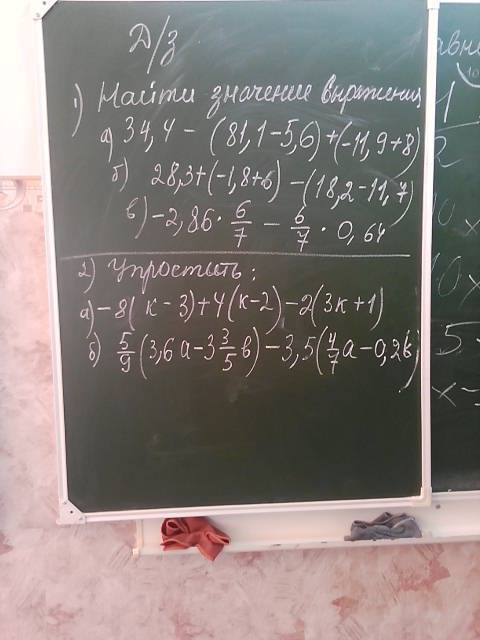 Д/з.
1) Найти значение выражения
а) 34,4 - (81,1-5,6)+(-11,9+8)
б) 28,3+(-1,8+6) -(18,2-11,7)
в) -2,86 · 6/7 - 6/7 · 0,64
2) Упростить:
а) -8(к-3)+4(к-2)-2(3к+1)
б) 5/9(3,6а-3 3/5в)-3,5(4/7а-0,2в)
1
2